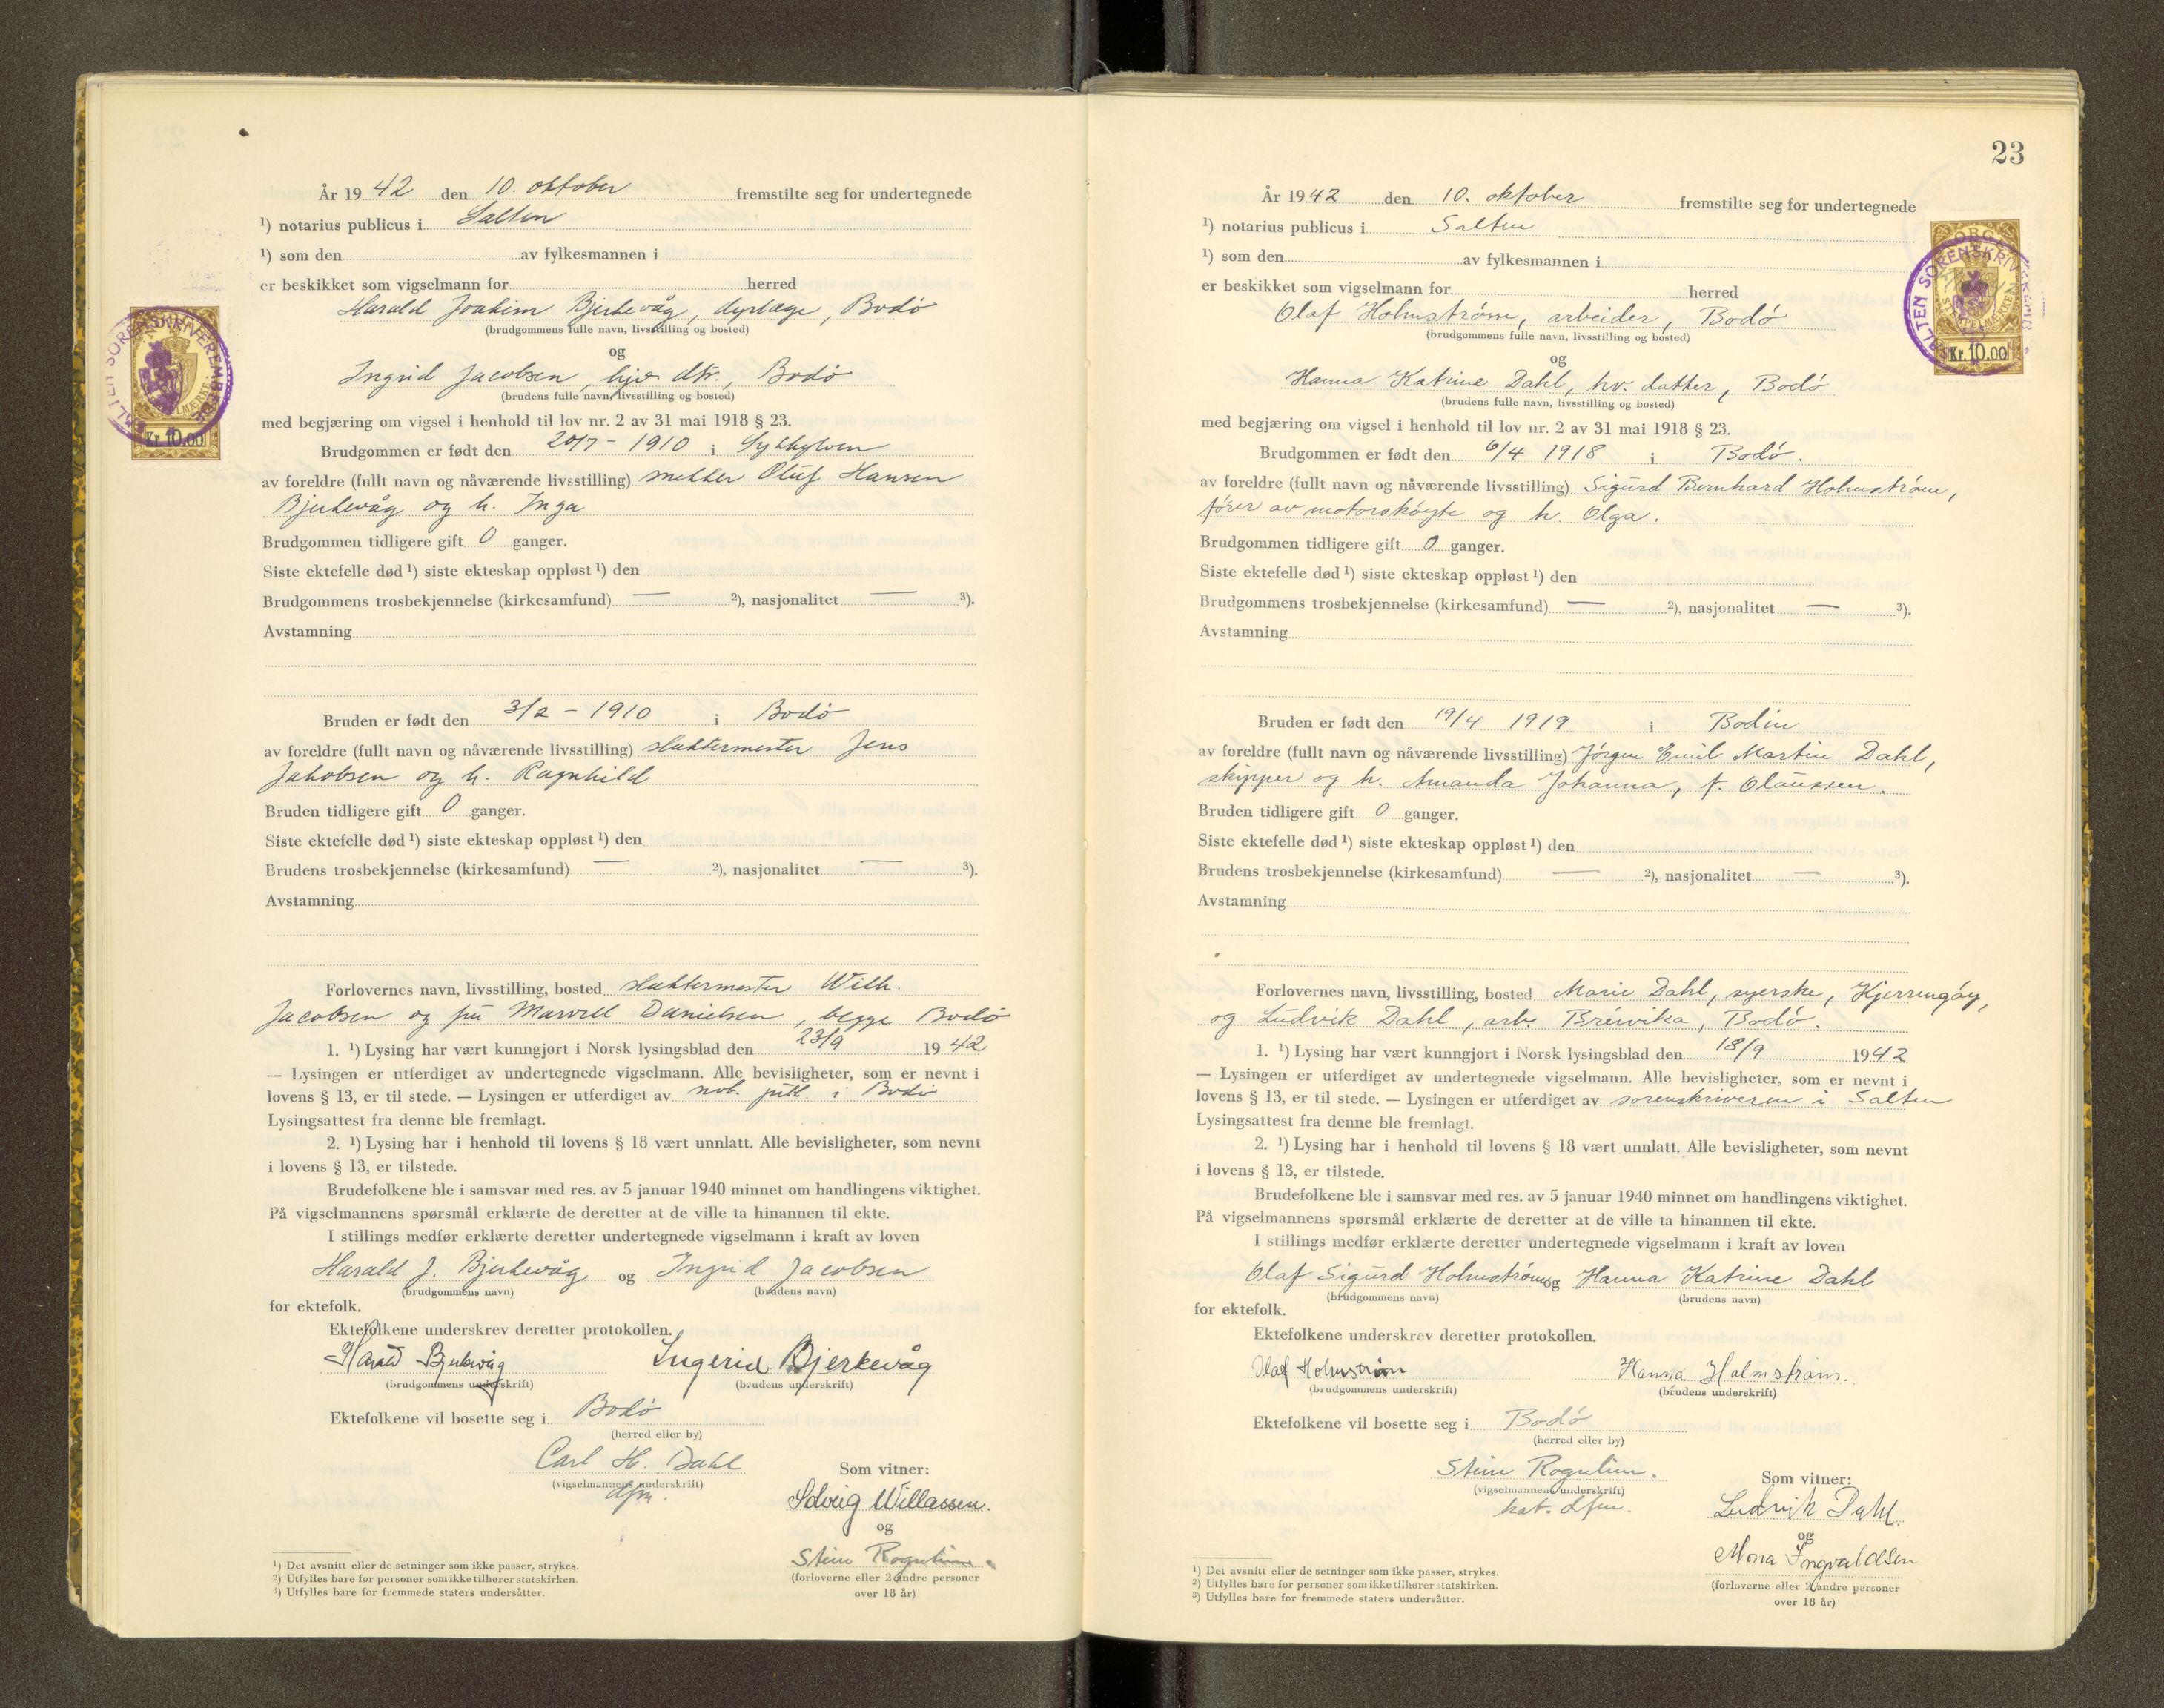 År 1942 den 10. oktober fremstilte seg for undertegnede
¹) notarius publicus i Salten
¹) som den av fylkesmannen i
er beskikket som vigselmann for herred
Harald Joakim Bjerkevåg, dyrlæge, Bodö
(brudgommens fulle navn, livsstilling og bosted)
og
Ingrid Jacobsen, hjv. dtr., Bodö
(brudens fulle navn, livsstilling og bosted)
med begjæring om vigsel i henhold til lov nr. 2 av 31 mai 1918 § 23.
Brudgommen er født den 20/7 - 1910 i Sykkylven
av foreldre (fullt navn og nåværende livsstilling) snekker Oluf Hansen
Bjerkevåg og h. Inga
Brudgommen tidligere gift 0 ganger.
Siste ektefelle død ¹) siste ekteskap oppløst ¹) den
Brudgommens trosbekjennelse (kirkesamfund) — ²), nasjonalitet — ³).
Avstamning
Bruden er født den 3/2 - 1910 i Bodö
av foreldre (fullt navn og nåværende livsstilling) slaktermester Jens
Jakobsen og h. Ragnhild
Bruden tidligere gift 0 ganger.
Siste ektefelle død ¹) siste ekteskap oppløst ¹) den
Brudens trosbekjennelse (kirkesamfund) — ²), nasjonalitet — ³).
Avstamning
Forlovernes navn, livsstilling, bosted slaktermester Wilh.
Jacobsen og fru Marvell Danielsen, begge Bodö
1. ¹) Lysing har vært kunngjort i Norsk lysingsblad den 23/9 1942
— Lysingen er utferdiget av undertegnede vigselmann. Alle bevisligheter, som er nevnt i
lovens § 13, er til stede. — Lysingen er utferdiget av not. publ. i Bodö
Lysingsattest fra denne ble fremlagt.
2. ¹) Lysing har i henhold til lovens § 18 vært unnlatt. Alle bevisligheter, som nevnt
i lovens § 13, er tilstede.
Brudefolkene ble i samsvar med res. av 5 januar 1940 minnet om handlingens viktighet.
På vigselmannens spørsmål erklærte de deretter at de ville ta hinannen til ekte.
I stillings medfør erklærte deretter undertegnede vigselmann i kraft av loven
Harald J. Bjerkevåg og Ingrid Jacobsen
(brudgommens navn) (brudens navn)
for ektefolk.
Ektefolkene underskrev deretter protokollen.
Harald Bjerkevåg Ingerid Bjerkevåg
(brudgommens underskrift) (brudens underskrift)
Ektefolkene vil bosette seg i Bodö
(herred eller by)
Carl H. Dahl
(vigselmannens underskrift)
dfm.
Som vitner:
Solveig Willassen.
og
Stein Rognlien
(forloverne eller 2 andre personer
over 18 år)
¹) Det avsnitt eller de setninger som ikke passer, strykes.
²) Utfylles bare for personer som ikke tilhører statskirken.
³) Utfylles bare for fremmede staters undersåtter.
SALTEN SORENSKRIVEREMBEDE
Kr. 10.00
23
År 1942 den 10. oktober fremstilte seg for undertegnede
¹) notarius publicus i Salten
¹) som den av fylkesmannen i
er beskikket som vigselmann for herred
Olaf Holmström, arbeider, Bodö
(brudgommens fulle navn, livsstilling og bosted)
og
Hanna Katrine Dahl, hv. datter, Bodö
(brudens fulle navn, livsstilling og bosted)
med begjæring om vigsel i henhold til lov nr. 2 av 31 mai 1918 § 23.
Brudgommen er født den 6/4 1918 i Bodö.
av foreldre (fullt navn og nåværende livsstilling) Sigurd Bernhard Holmström,
förer av motorsköyte og h. Olga.
Brudgommen tidligere gift 0 ganger.
Siste ektefelle død ¹) siste ekteskap oppløst ¹) den
Brudgommens trosbekjennelse (kirkesamfund) — ²), nasjonalitet — ³).
Avstamning
Bruden er født den 19/4 1919 i Bodin
av foreldre (fullt navn og nåværende livsstilling) Jörgen Emil Martin Dahl,
skipper og h. Amanda Johanna, f. Olaussen.
Bruden tidligere gift 0 ganger.
Siste ektefelle død ¹) siste ekteskap oppløst ¹) den
Brudens trosbekjennelse (kirkesamfund) — ²), nasjonalitet — ³).
Avstamning
Forlovernes navn, livsstilling, bosted Marie Dahl, syerske, Kjerringöy,
og Ludvik Dahl, arb. Breivika, Bodö.
1. ¹) Lysing har vært kunngjort i Norsk lysingsblad den 18/9 1942
— Lysingen er utferdiget av undertegnede vigselmann. Alle bevisligheter, som er nevnt i
lovens § 13, er til stede. — Lysingen er utferdiget av sorenskriveren i Salten
Lysingsattest fra denne ble fremlagt.
2. ¹) Lysing har i henhold til lovens § 18 vært unnlatt. Alle bevisligheter, som nevnt
i lovens § 13, er tilstede.
Brudefolkene ble i samsvar med res. av 5 januar 1940 minnet om handlingens viktighet.
På vigselmannens spørsmål erklærte de deretter at de ville ta hinannen til ekte.
I stillings medfør erklærte deretter undertegnede vigselmann i kraft av loven
Olaf Sigurd Holmström og Hanna Katrine Dahl
(brudgommens navn) (brudens navn)
for ektefolk.
Ektefolkene underskrev deretter protokollen.
Olaf Holmström Hanna Holmstrøm.
(brudgommens underskrift) (brudens underskrift)
Ektefolkene vil bosette seg i Bodö
(herred eller by)
Stein Rognlien.
(vigselmannens underskrift)
kst. dfm.
Som vitner:
Ludvik Dahl.
og
Mona Ingvaldsen
(forloverne eller 2 andre personer
over 18 år)
¹) Det avsnitt eller de setninger som ikke passer, strykes.
²) Utfylles bare for personer som ikke tilhører statskirken.
³) Utfylles bare for fremmede staters undersåtter.
Kr. 10.00